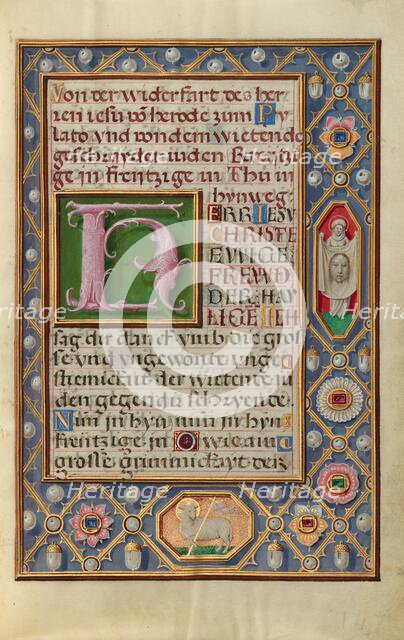 Von der widerfart des her
ren iesu vō herode zum Py
lato vnd von dem wietende
geschray der iuden Kreitzi
ge in kreitzige in Thu in
hynweg
ERR IESV
CHRISTE
EWIGE
FREVND
DER HAY
LIGE ICH
sag dir danck vmb die gros
se vnd vngewonte vnge
stiemickait der wietende iu
den gegen dir schryende.
Nim in hyn nim in hyn
kreitzige in O wie ain
grosse grimmickayt der
Heritage
Heritage
Heritage
Heritage
Heritage
Heritage